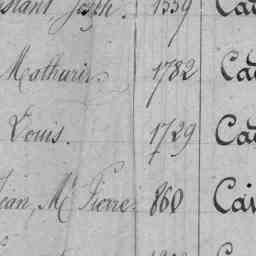 Joseph. 1559 Ca
Mathurin. 1782 Ca
Louis. 1729 Ca
Jean, M. Pierre. 860 Cai